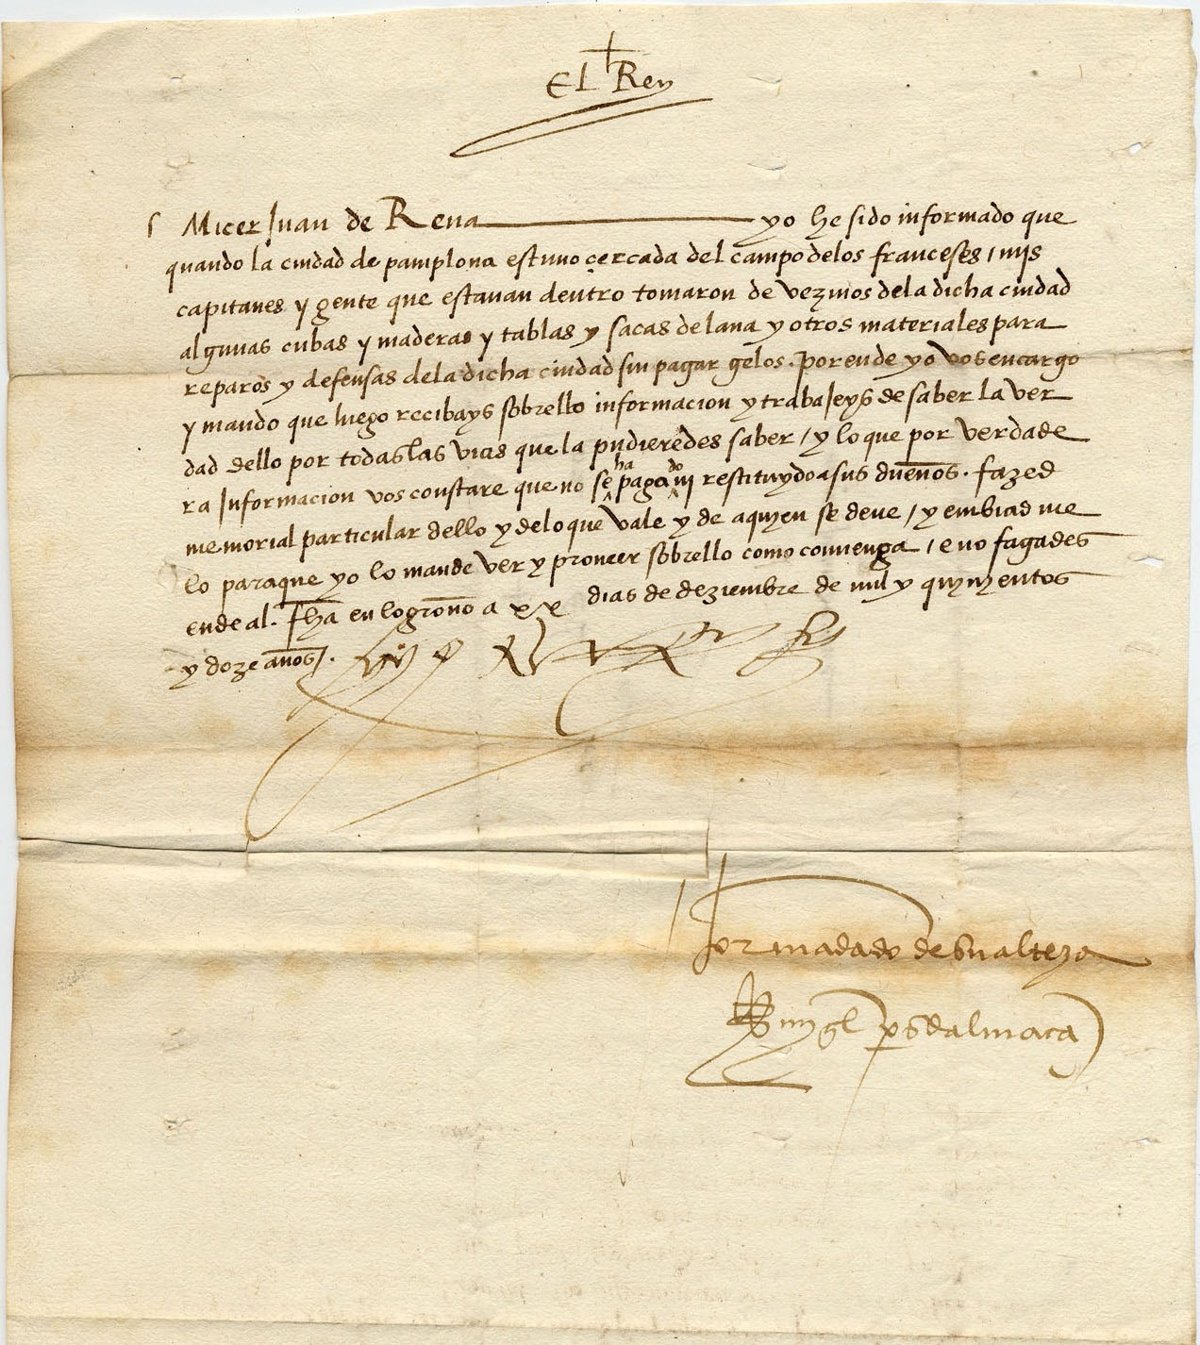 El Rey
Micer Juan de Rena yo he sido informado que
quando la ciudad de pamplona estuuo çercada del campo delos franceses / mis
capitanes y gente que estauan dentro tomaron de vezinos dela dicha ciudad
algunas cubas y maderas y tablas y sacas de lana y otros materiales para
reparos y defensas dela dicha ciudad sin pagar gelos. por ende yo vos encargo
y mando que luego recibays sobrello informacion y trabajeys de saber la ver
dad dello por todas las vias que la pudieredes saber / y lo que por verdade
ra Informacion vos constare que no se ha pagado ni restituydo a sus dueños. fazed
memorial particular dello y delo que vale y de a quyen se deue / y embiad me
lo para que yo lo mande ver y proueer sobrello como conuenga / e no fagades
ende al. fha en logroño a xx dias de deziembre de mil y quynyentos
y doze años /.
yo el Rey
Por madado de su alteza
pes dalmaça